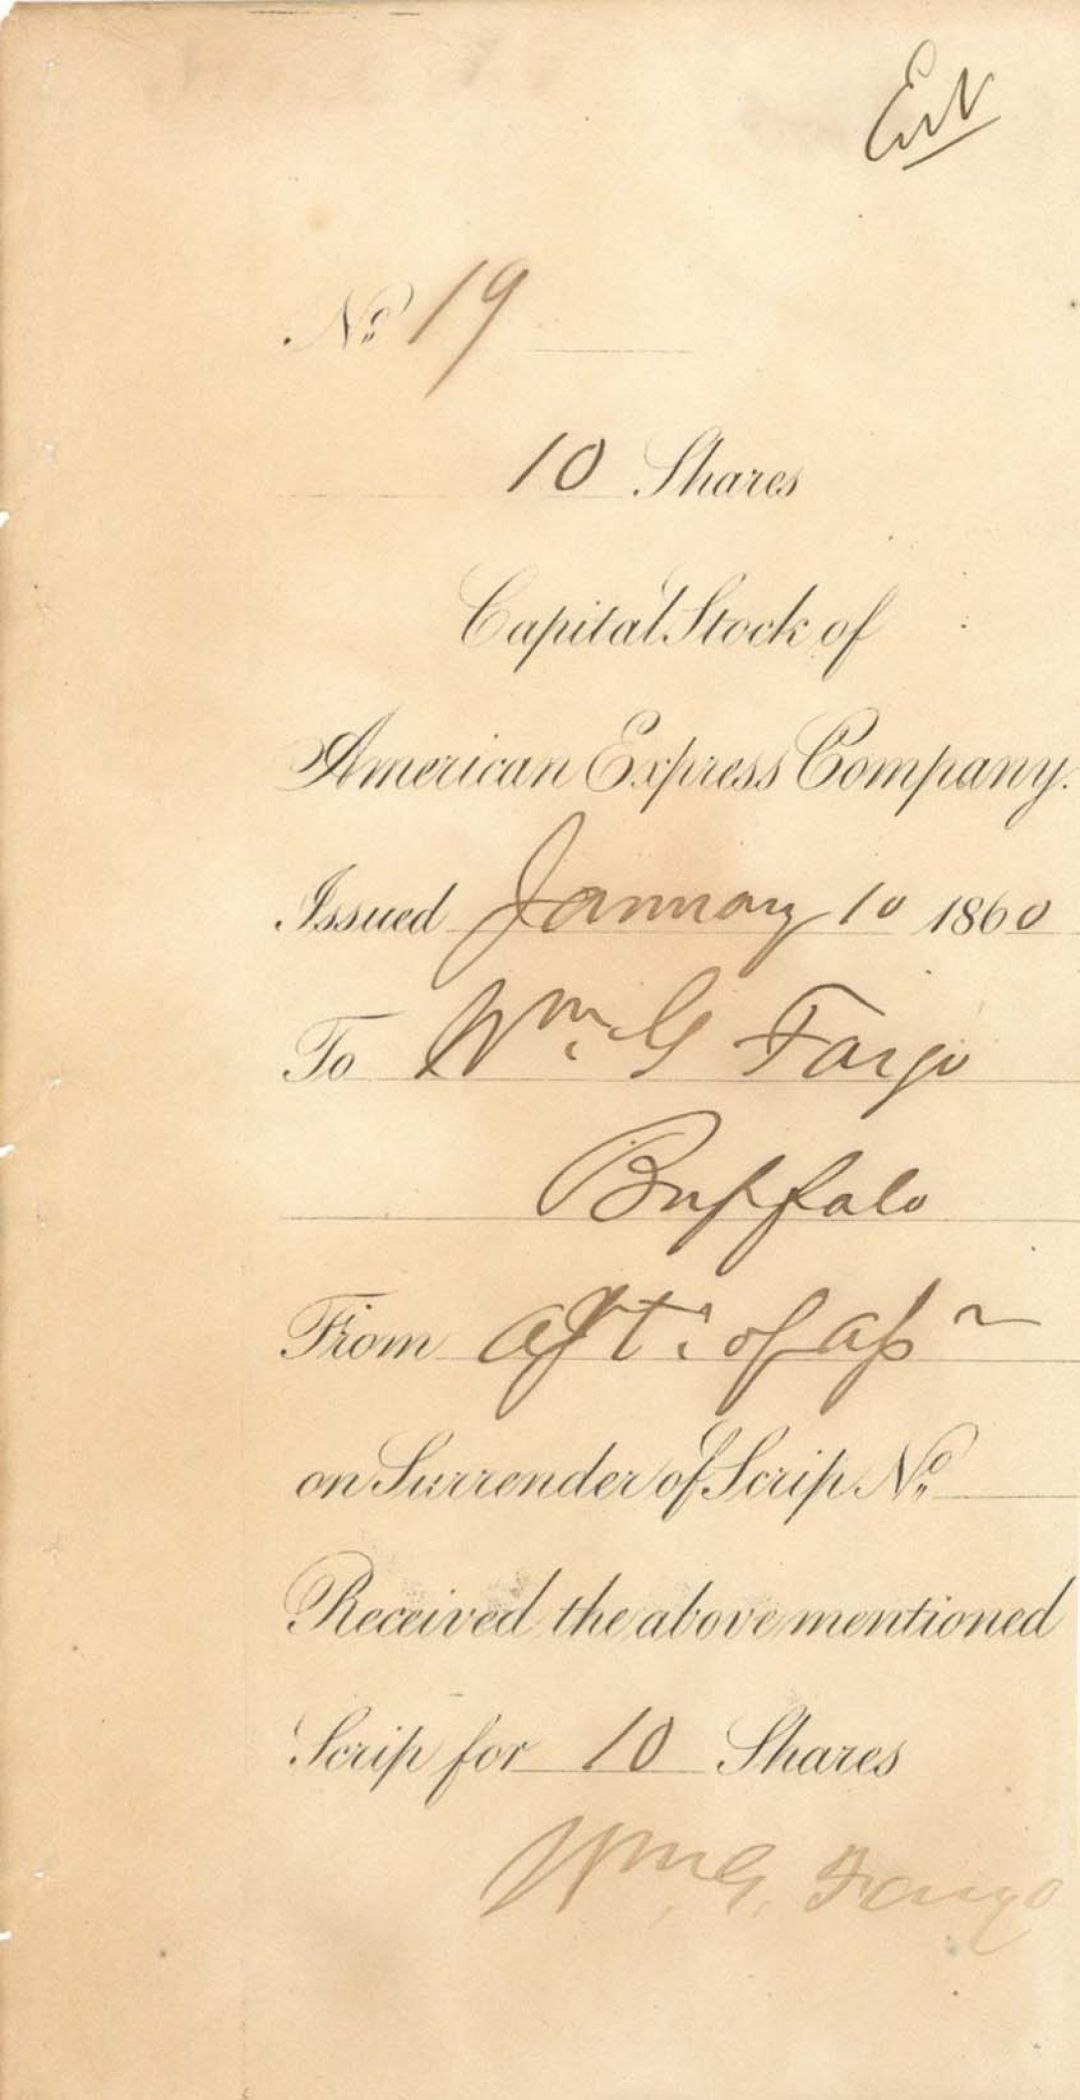 Ent
No. 19
10 Shares
Capital Stock of
American Express Company.
Issued January 10 1860
To Wm. G Fargo
Buffalo
From of
on Surrender of Scrip No.
Received the above mentioned
Scrip for 10 Shares
Wm. G. Fargo